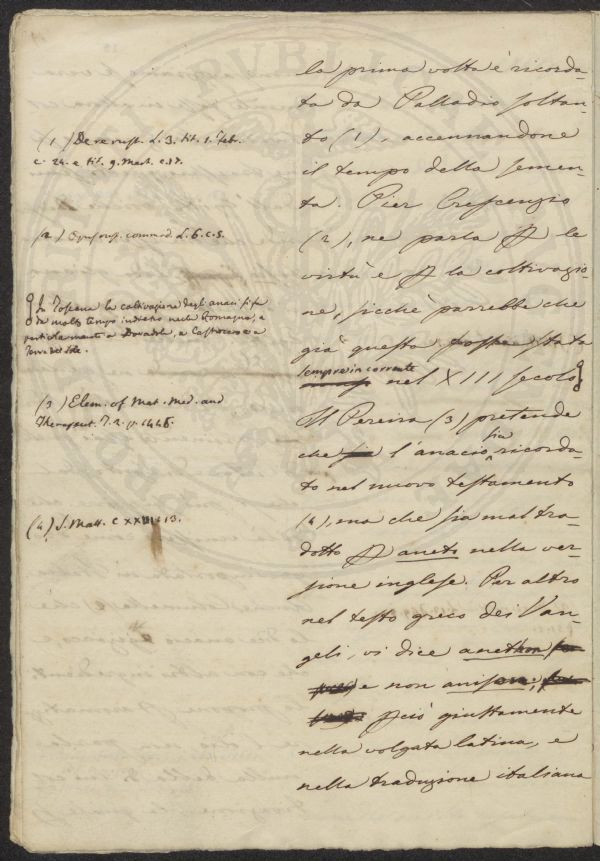 (1) De re rust. L. 3. tit. 1. Febr.
c. 24. e tit. 9. Mart. c. 17.
(2) Opus rur. commod. L. 6. c. 5.
In Toscana la coltivazione degli anaci si fa
da molto tempo indietro nella Romagna, e
particolarmente a Dovadola, a Castrocaro e a
Terra del Sole.
(3) Elem. of Mat. Med. and
Therapeut. T. 2. p. 1446.
(4) S. Matt. C XXIII 13.
la prima volta è ricorda-
ta da Palladio soltan-
to (1), accennandone
il tempo della semen-
ta. Pier Crescenzio
(2), ne parla p le
virtù e p la coltivazio-
ne, sicchè parrebbe che
già questa fosse stata
sempre in corrente
nel XIII secolo
Il Pereira (3) pretende
che l'anacio sia ricorda-
to nel nuovo testamento
(4), ma che sia mal tra-
dotto p aneto nella ver-
sione inglese. Per altro
nel testo greco dei Van-
geli, vi dice anethon
e non anison;
pciò giustamente
nella volgata latina, e
nella traduzione italiana